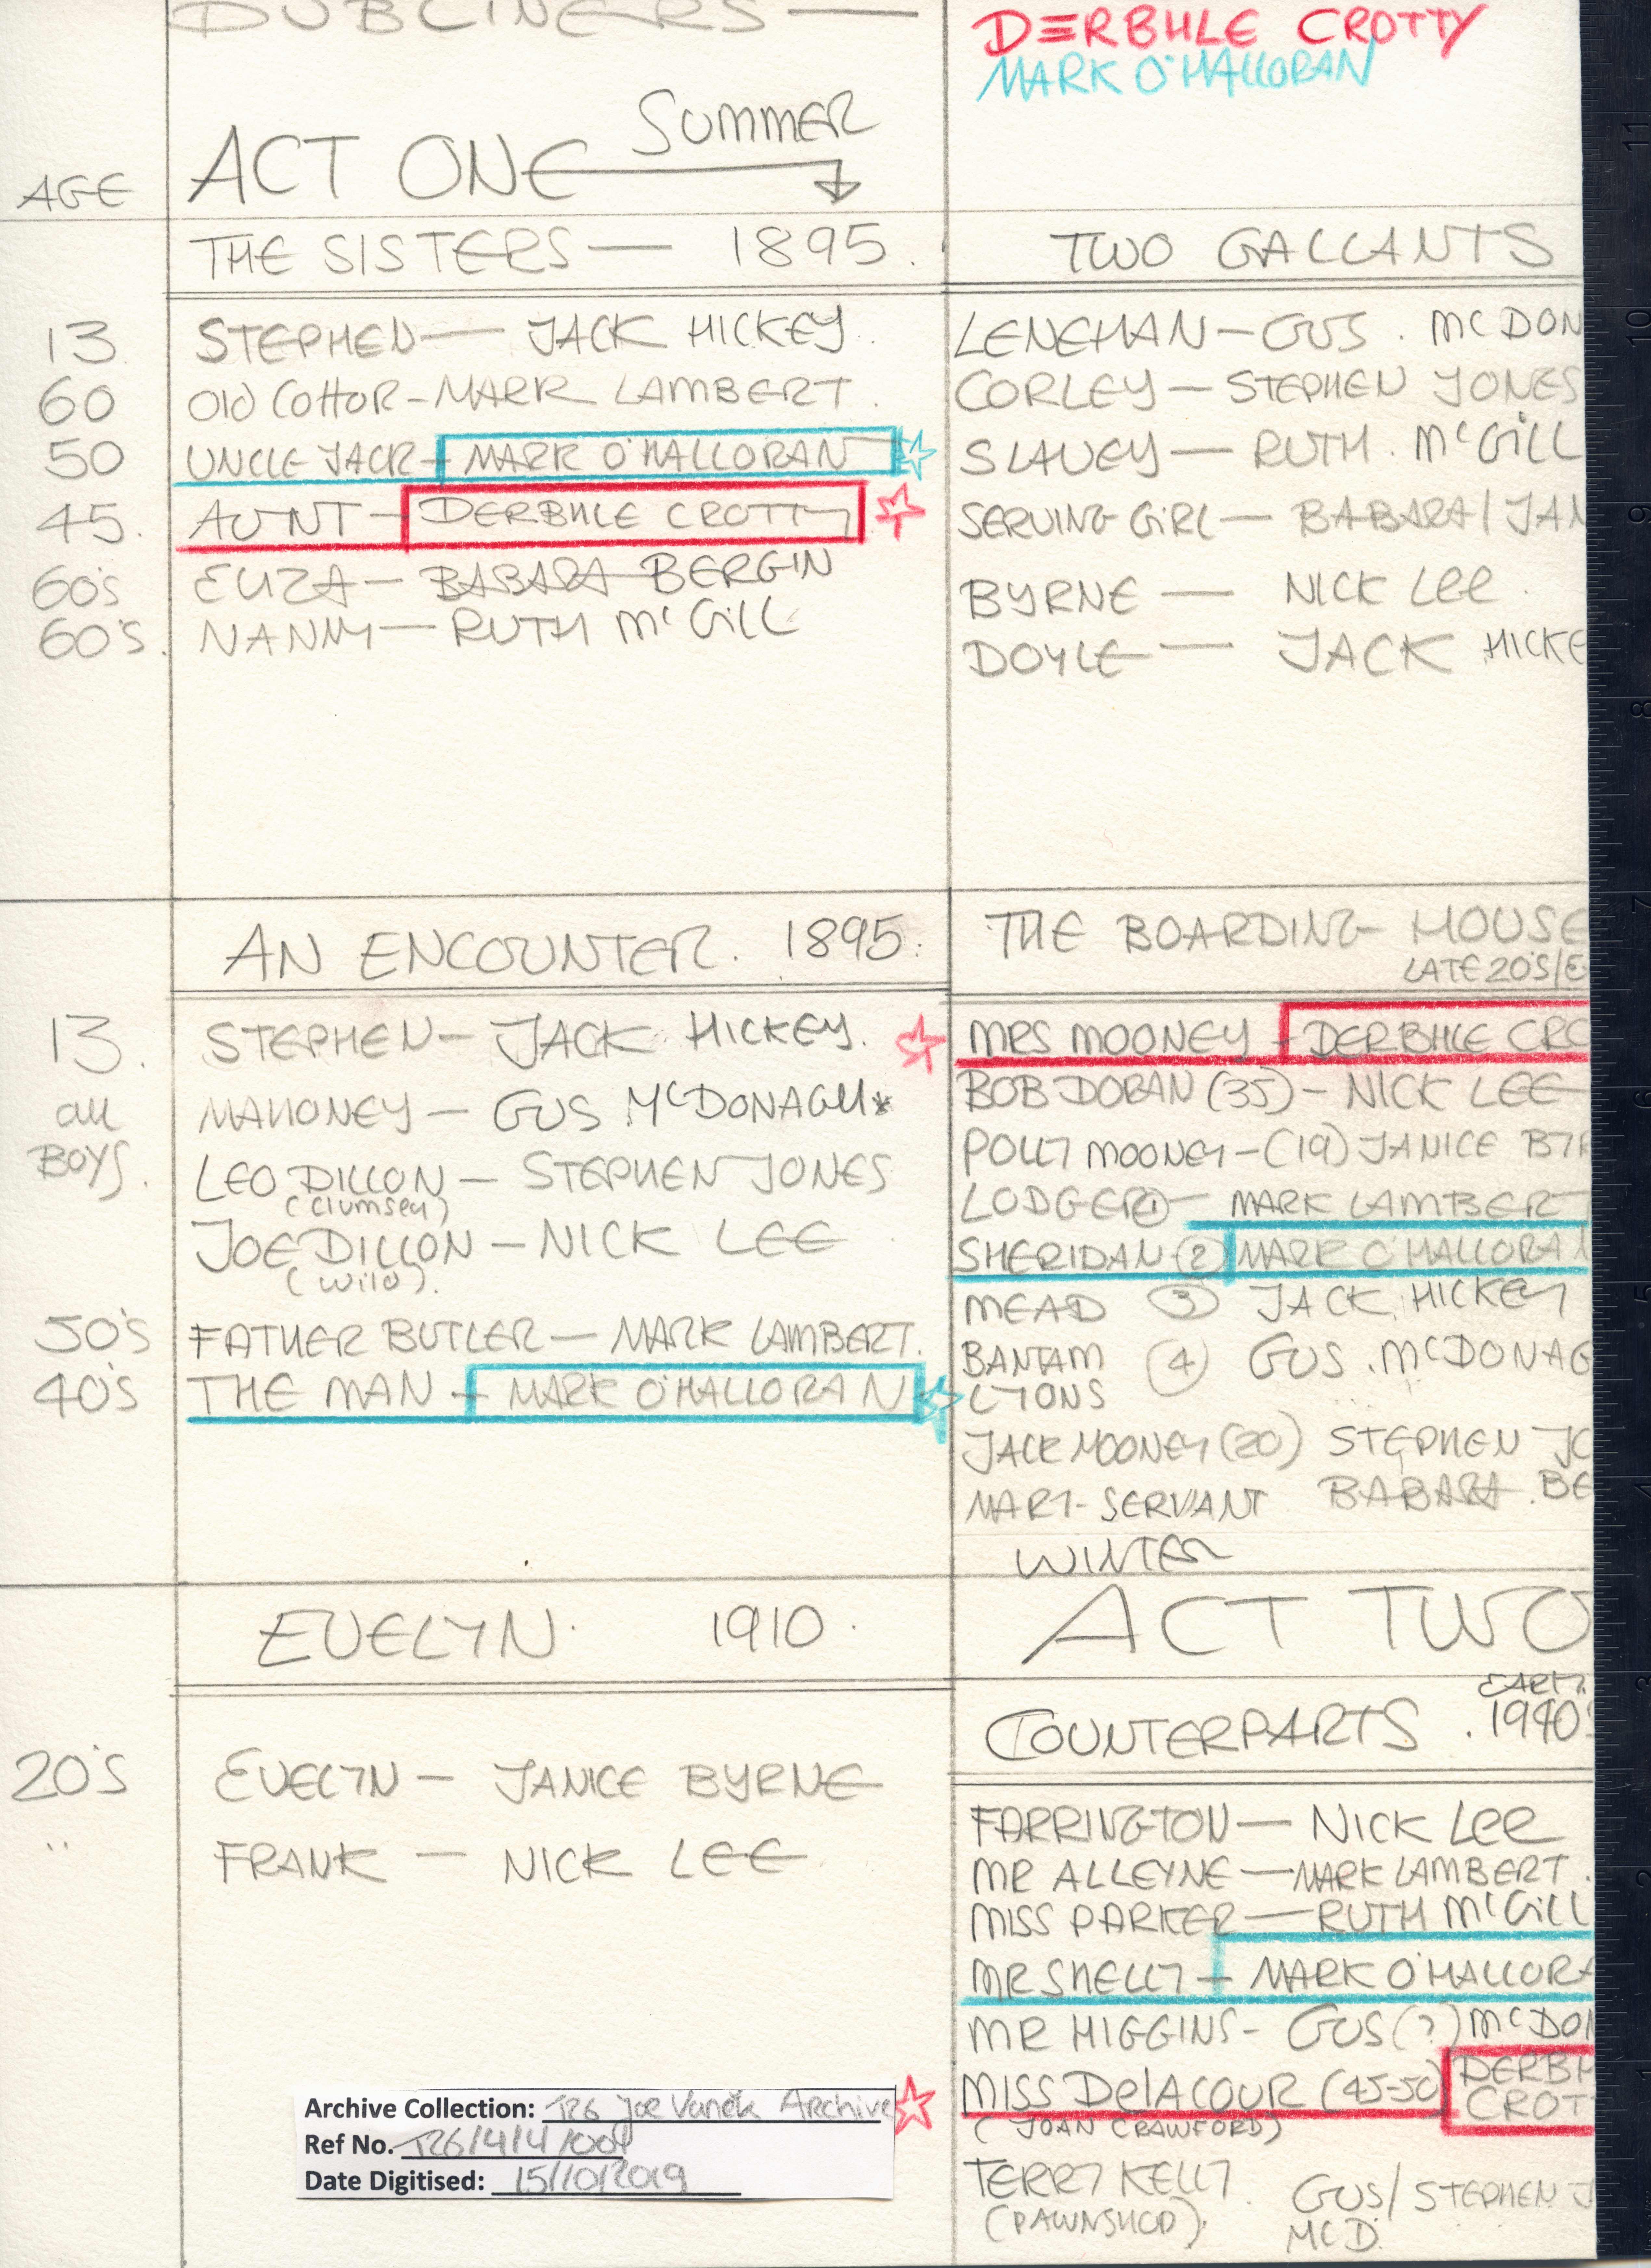 DUBLINERS —
DERBHLE CROTTY
MARK O'HALLORAN
AGE
ACT ONE
SUMMER
THE SISTERS — 1895.
13 STEPHEN — JACK HICKEY.
60 Old Cotter - MARK LAMBERT.
50 UNCLE JACK - MARK O'HALLORAN
45. AUNT - DERBHLE CROTTY
60's ELIZA - BABARA BERGIN
60's. NANNY — RUTH McGill
TWO GALLANTS
LENEHAN - GUS. McDON
CORLEY - STEPHEN JONES
SLAVEY - RUTH. McGill
SERVING GIRL - BABARA / JAN
BYRNE — NICK Lee.
DOYLE — JACK HICKE
AN ENCOUNTER. 1895.
13. STEPHEN - JACK HICKEY.
all BOYS.
MAHONEY - GUS McDONAGH*
LEO DILLON - STEPHEN JONES
(Clumsey)
JOE DILLON - NICK LEE
(wild).
50's FATHER BUTLER - MARK LAMBERT.
40's THE MAN - MARK O'HALLORAN
THE BOARDING HOUSE
LATE 20'S/E
MRS MOONEY - DERBHLE CRO
BOB DORAN (35) - NICK LEE
POLLY MOONEY - (19) JANICE BYR
LODGER ① - MARK LAMBERT
SHERIDAN ② MARK O'HALLORAN
MEAD ③ JACK HICKEY
BANTAM LYONS ④ GUS. McDONAG
JACK MOONEY (20) STEPHEN JO
MARY - SERVANT BABARA. BE
EVELYN. 1910.
20's EVELYN - JANICE BYRNE
" FRANK - NICK LEE
WINTER
ACT TWO
COUNTERPARTS. EARLY 1940's
FARRINGTON — NICK Lee
MR ALLEYNE — MARK LAMBERT.
MISS PARKER — RUTH McGill
MR SHELLY - MARK O'HALLORA
MR HIGGINS - GUS (?) McDON
MISS DelACOUR (45-50) DERBH CROT
(JOAN CRAWFORD)
TERRY KELLY. GUS/ STEPHEN J
(PAWNSHOP). McD.
Archive Collection: T26 Joe Vanék Archive
Ref No. T26/4/4/001
Date Digitised: 15/10/2019
11
10
9
8
7
6
5
4
3
2
1